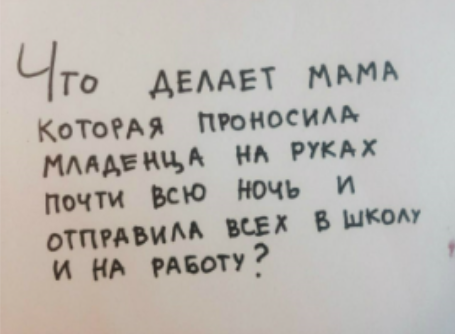 Что ДЕЛАЕТ МАМА
КОТОРАЯ ПРОНОСИЛА
МЛАДЕНЦА НА РУКАХ
ПОЧТИ ВСЮ НОЧЬ И
ОТПРАВИЛА ВСЕХ В ШКОЛУ
И НА РАБОТУ?